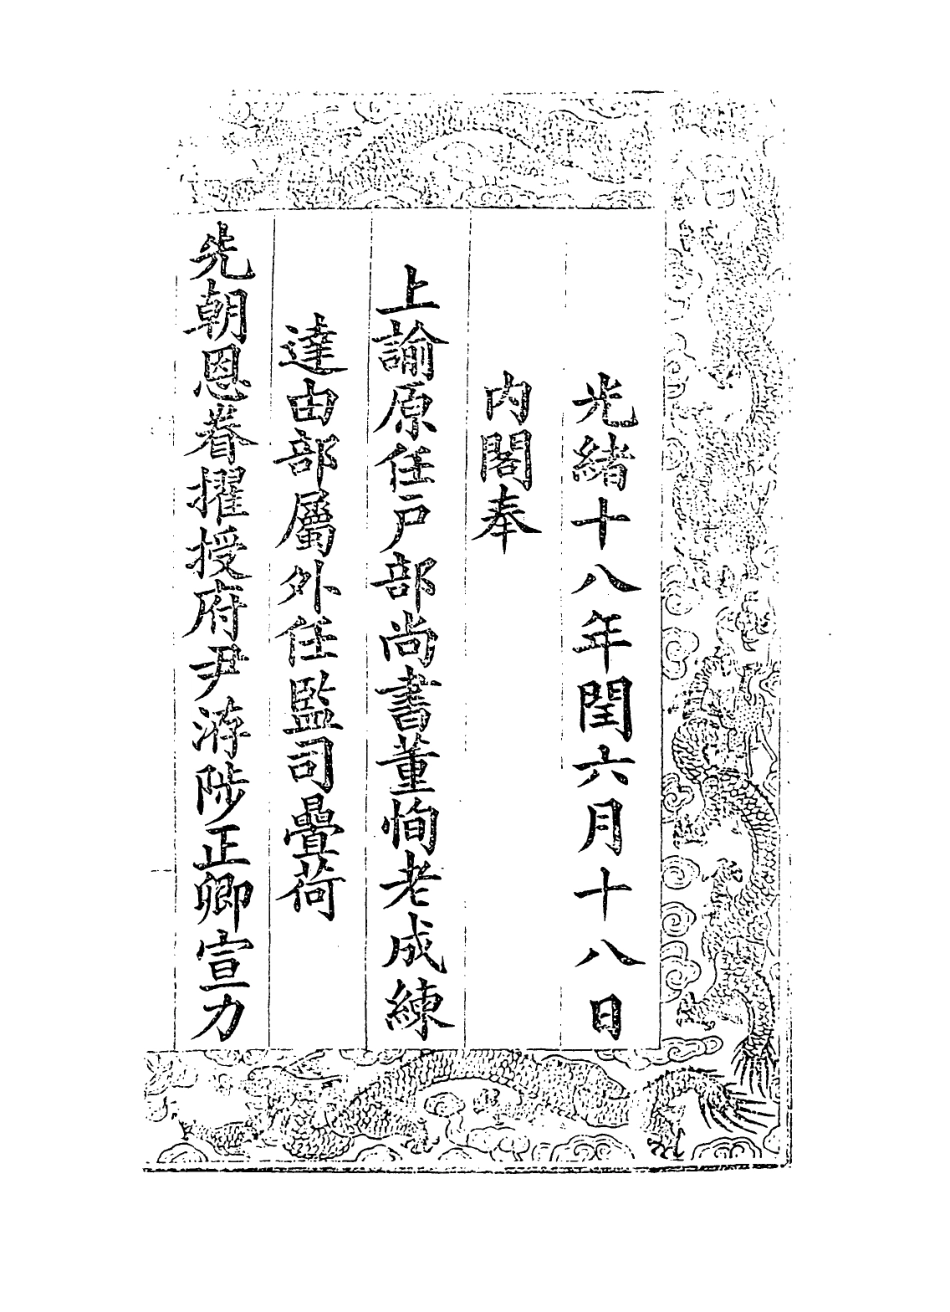 光緒十八年閏六月十八日
內閣奉
上諭原任戶部尚書董恂老成練
達由部屬外任監司疊荷
先朝恩眷擢授府尹洊陟正卿宣力